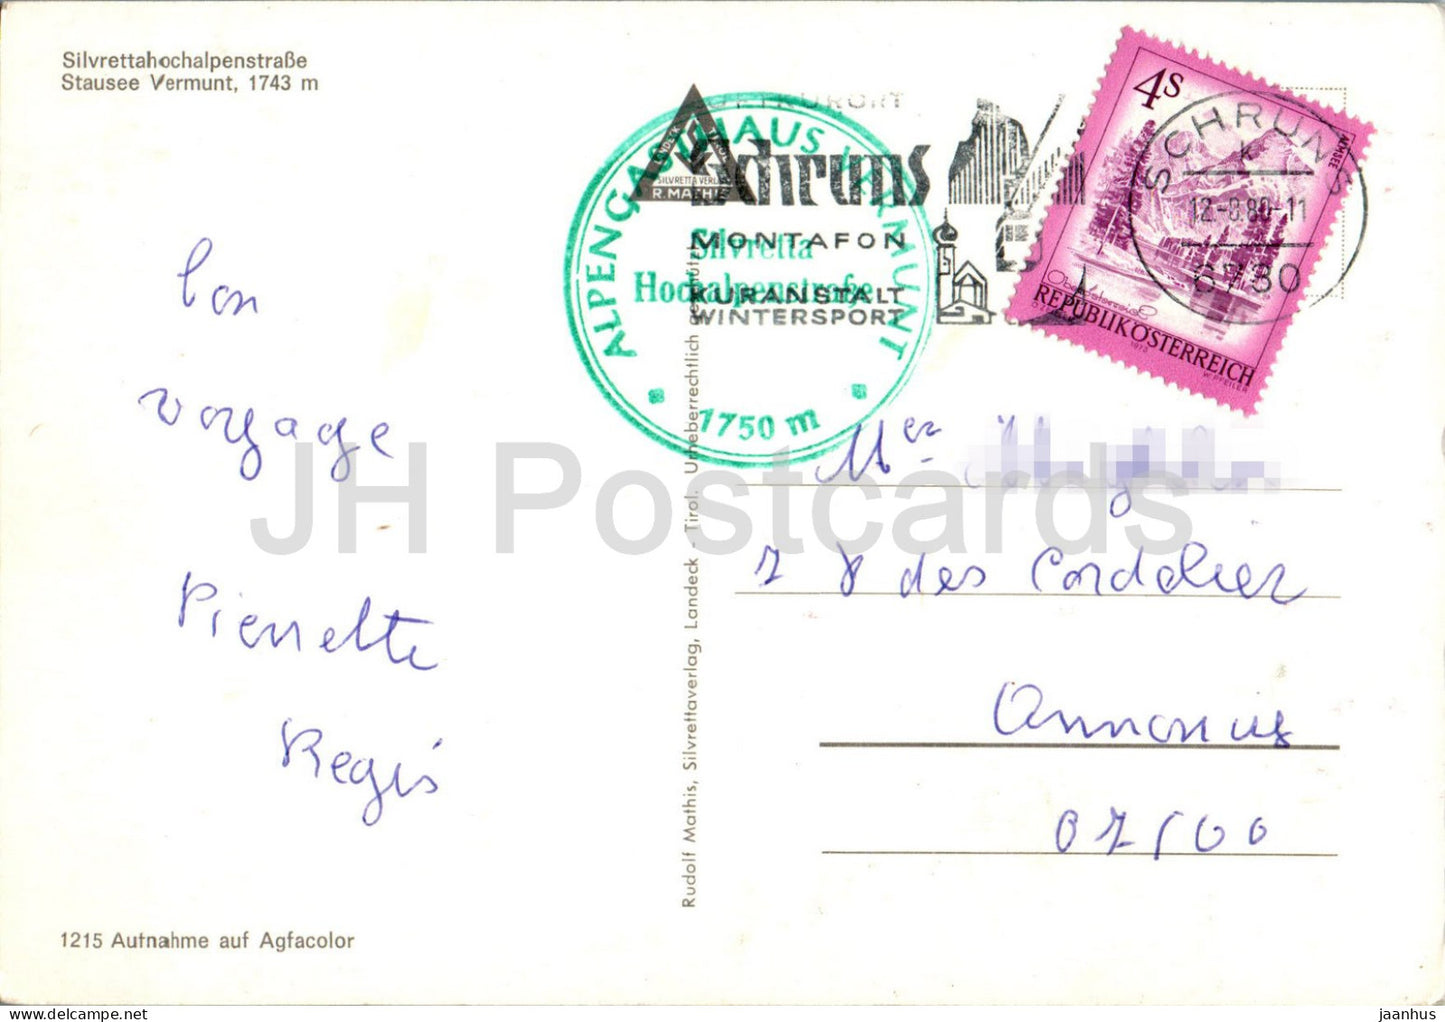 Silvrettahochalpenstraße
Stausee Vermunt, 1743 m
LUFTKURORT
Schruns
MONTAFON
KURANSTALT
WINTERSPORT
ALPENGASTHAUS VERMUNT
Silvretta
Hochalpenstraße
1750 m
LANDECK TIROL
SILVRETTA VERLAG
R. MATHIS
4S
Oberösterreich
REPUBLIK ÖSTERREICH
W. PFEILER
SCHRUNS
6780
bon
voyage
Pierrette
Regis
Mer
des Cordelier
Annonay
07100
Rudolf Mathis, Silvrettaverlag, Landeck - Tirol. Urheberrechtlich geschützt
1215 Aufnahme auf Agfacolor
JH Postcards
jaanhus